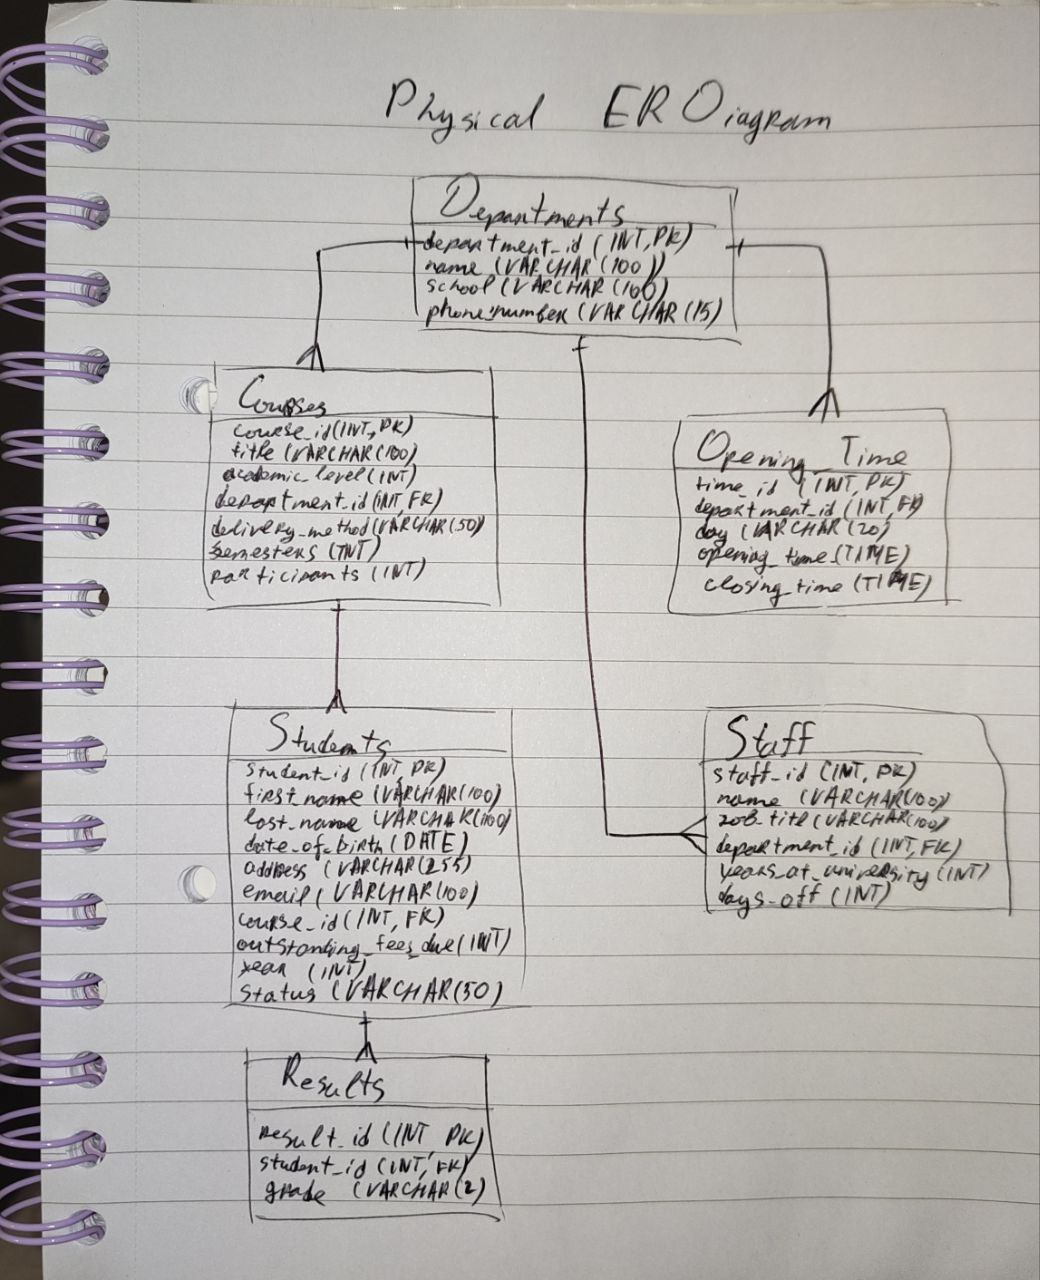 Physical ER Diagram
Departments
department_id (INT, PK)
name (VARCHAR(100))
school (VARCHAR(100)
phone_number (VARCHAR(15)
Courses
course_id (INT, PK)
title (VARCHAR(100)
academic_level (INT)
department_id (INT, FK)
delivery_method (VARCHAR(50)
semesters (INT)
participants (INT)
Opening_Time
time_id (INT, PK)
department_id (INT, FK)
day (VARCHAR(20)
opening_time (TIME)
closing_time (TIME)
Students
student_id (INT, PK)
first_name (VARCHAR(100)
last_name (VARCHAR(100)
date_of_birth (DATE)
address (VARCHAR(255)
email (VARCHAR(100)
course_id (INT, FK)
outstanding_fees_due (INT)
year (INT)
status (VARCHAR(50)
Staff
staff_id (INT, PK)
name (VARCHAR(100)
job_title (VARCHAR(100)
department_id (INT, FK)
years_at_university (INT)
days_off (INT)
Results
result_id (INT PK)
student_id (INT, FK)
grade (VARCHAR(2)